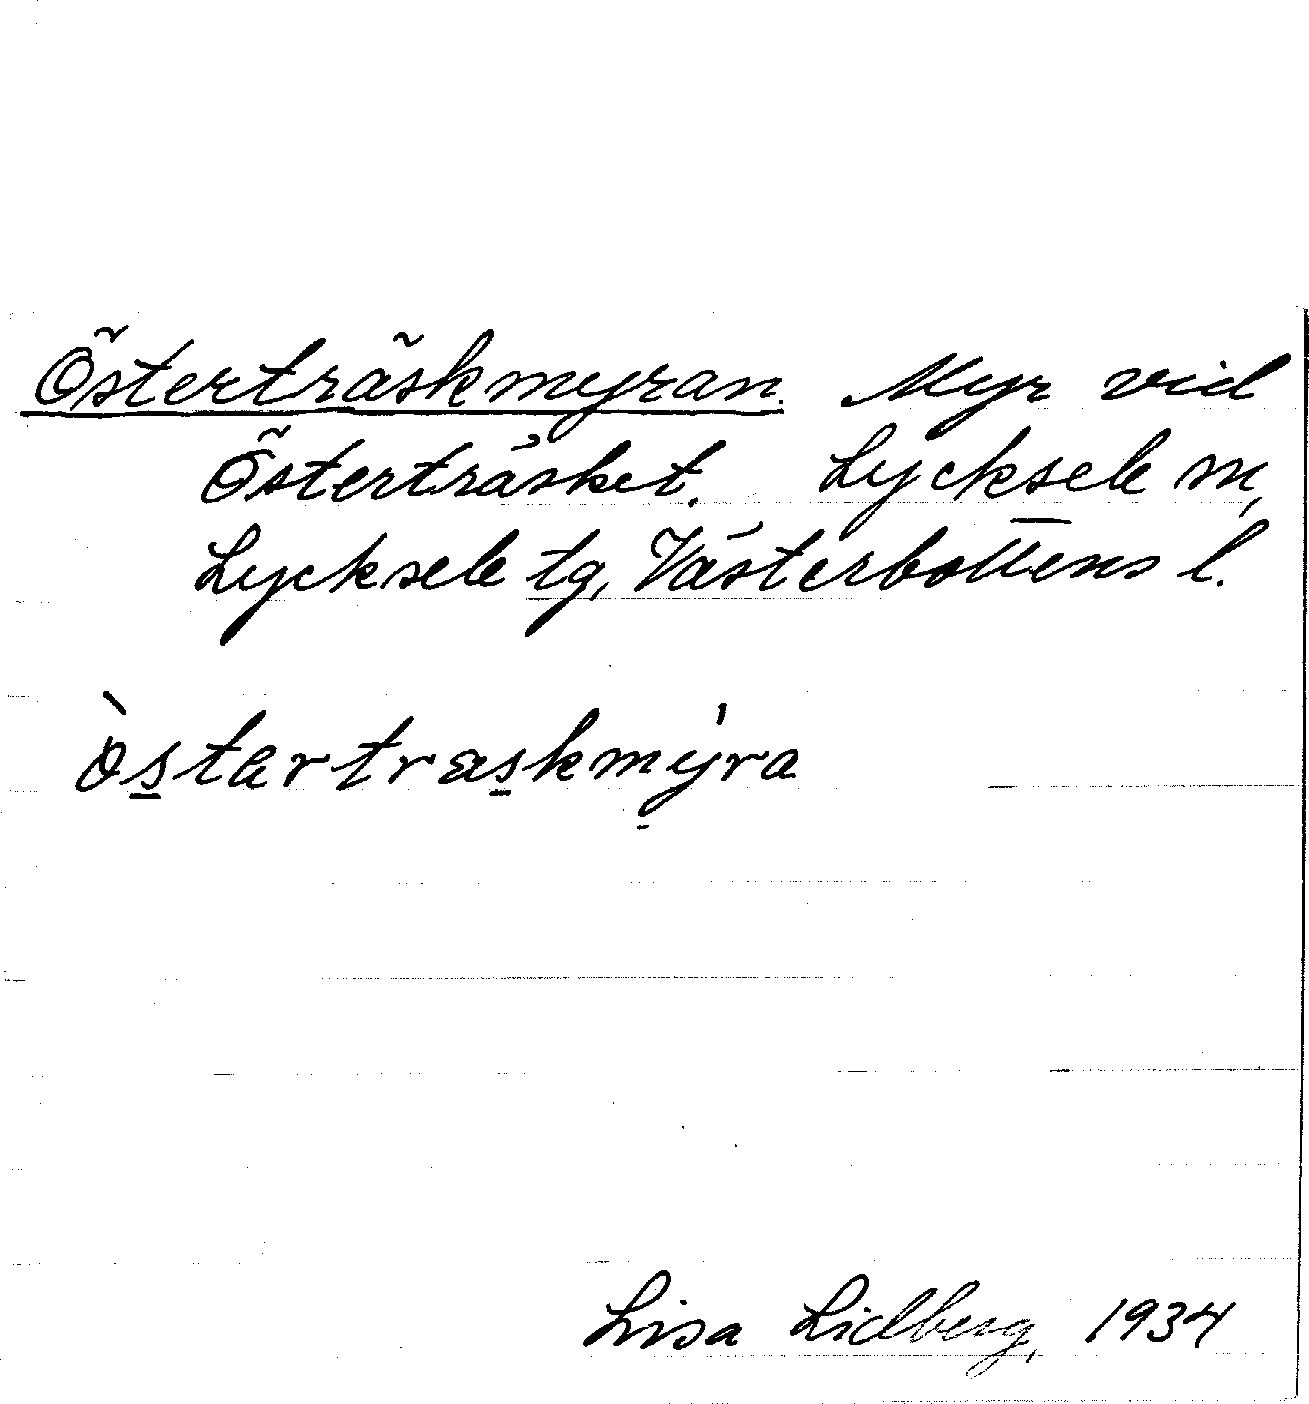 Österträskmyran. Myr vid
Österträsket. Lycksele sn,
Lycksele tg, Västerbottens l.
òstærtræskmýra
Lisa Lidberg, 1934